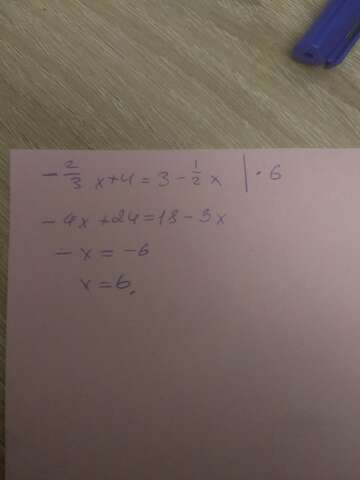 -2/3 x+4=3-1/2 x |·6
-4x+24=18-3x
-x=-6
x=6.